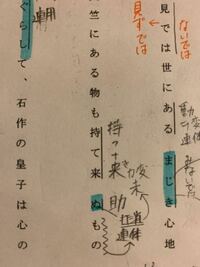 ないでは
見ずでは
見では世にあるまじき心地
竺にある物も持て来ぬもの
持つ+来
カ変
未
助
打消
連体
ぐらして、石作の皇子は心の
連用